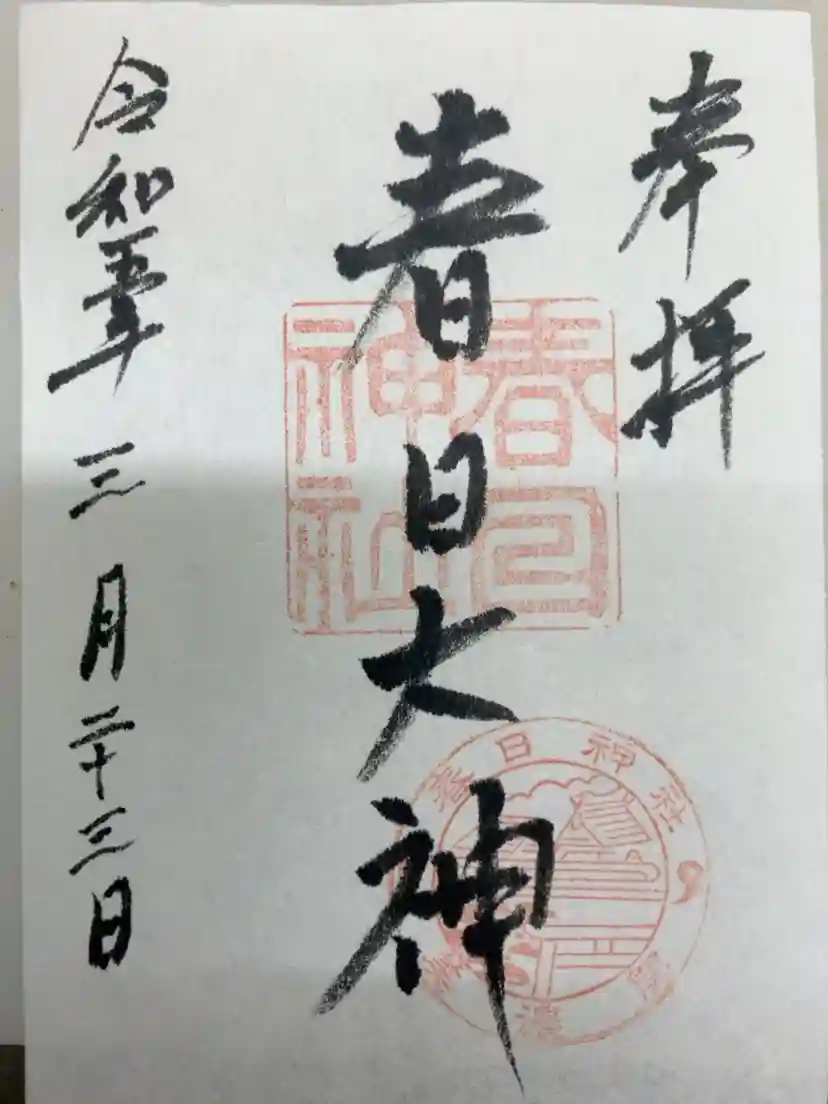 奉拝
春日大神
令和五年三月二十三日
春日
神社
春日神社